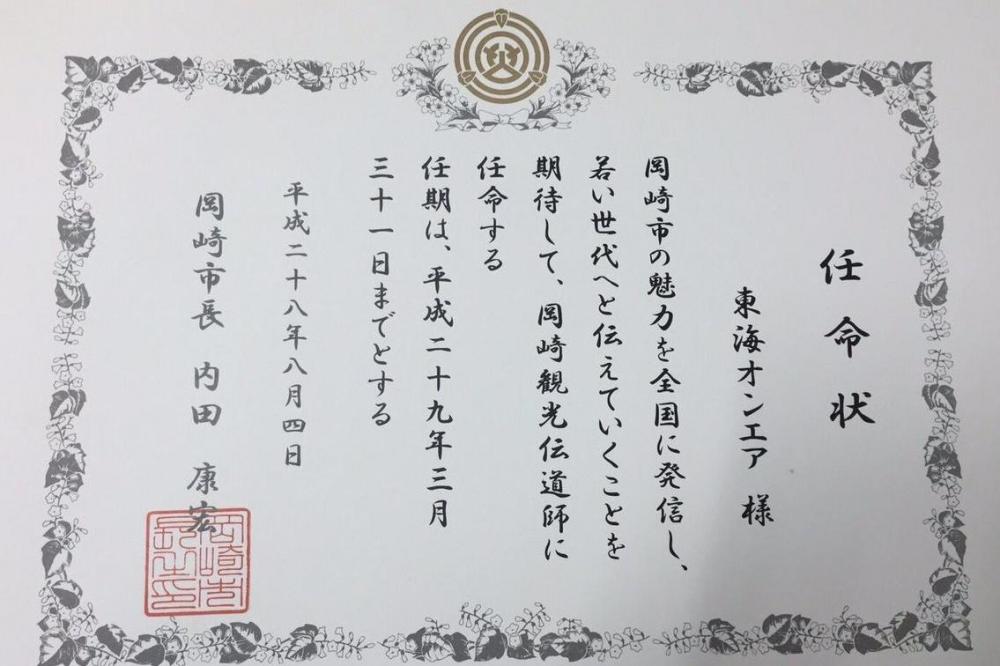 任命状
東海オンエア 様
岡崎市の魅力を全国に発信し、
若い世代へと伝えていくことを
期待して、岡崎観光伝道師に
任命する
任期は、平成二十九年三月
三十一日までとする
平成二十八年八月四日
岡崎市長 内田 康宏
岡崎市
長之印